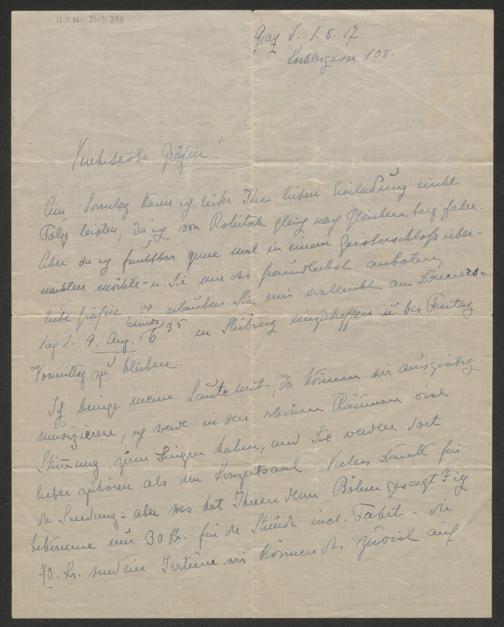 H.I.N. 213.218
Graz d. 1.8.17
Körblergasse 108.
Verehrteste Gräfin!
Am Sonntag kann ich leider Ihrer lieben Einladung nicht
Folge leisten, da ich von Rohitsch gleich nach Gleichenberg fahre.
Aber da ich furchtbar gerne mal in einem Geisterschloß über-
nachten möchte - u. Sie mir das freundlichst anboten,
liebe Gräfin so erlauben Sie mir vielleicht am Donners-
tag d. 9. Aug. abends 6 35 in Stübing einzutreffen u. bis Freitag
Vormittag zu bleiben.
Ich bringe meine Laute mit, da können wir ausgiebig
musizieren, ich werde in den schönen Räumen viel
Stimmung zum Singen haben, und Sie werden dort
lieber zuhören als im Konzertsaal. Vielen Dank für
die Sendung - aber was hat Ihnen denn Böhm gesagt? ich
bekomme nur 30 Kr. für die Stunde incl. Fahrt - die
70. Kr. sind ein Irrtum wir können das zuviel auf